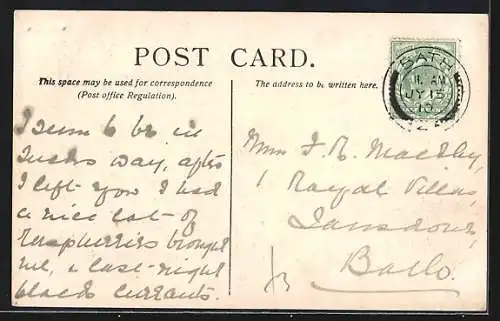 POST CARD.
This space may be used for correspondence
(Post office Regulation).
The address to be written here.
BATH
11. AM
JY 15
10
I seem to be in
way, after
I left you I had
a nice lot of
raspberries brought
me, & last night
black currants.
1 Royal Villas,
Lansdown,
Bath.